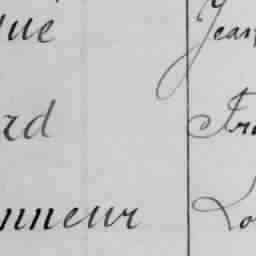 que Jean
rd Fra
nneur Lo